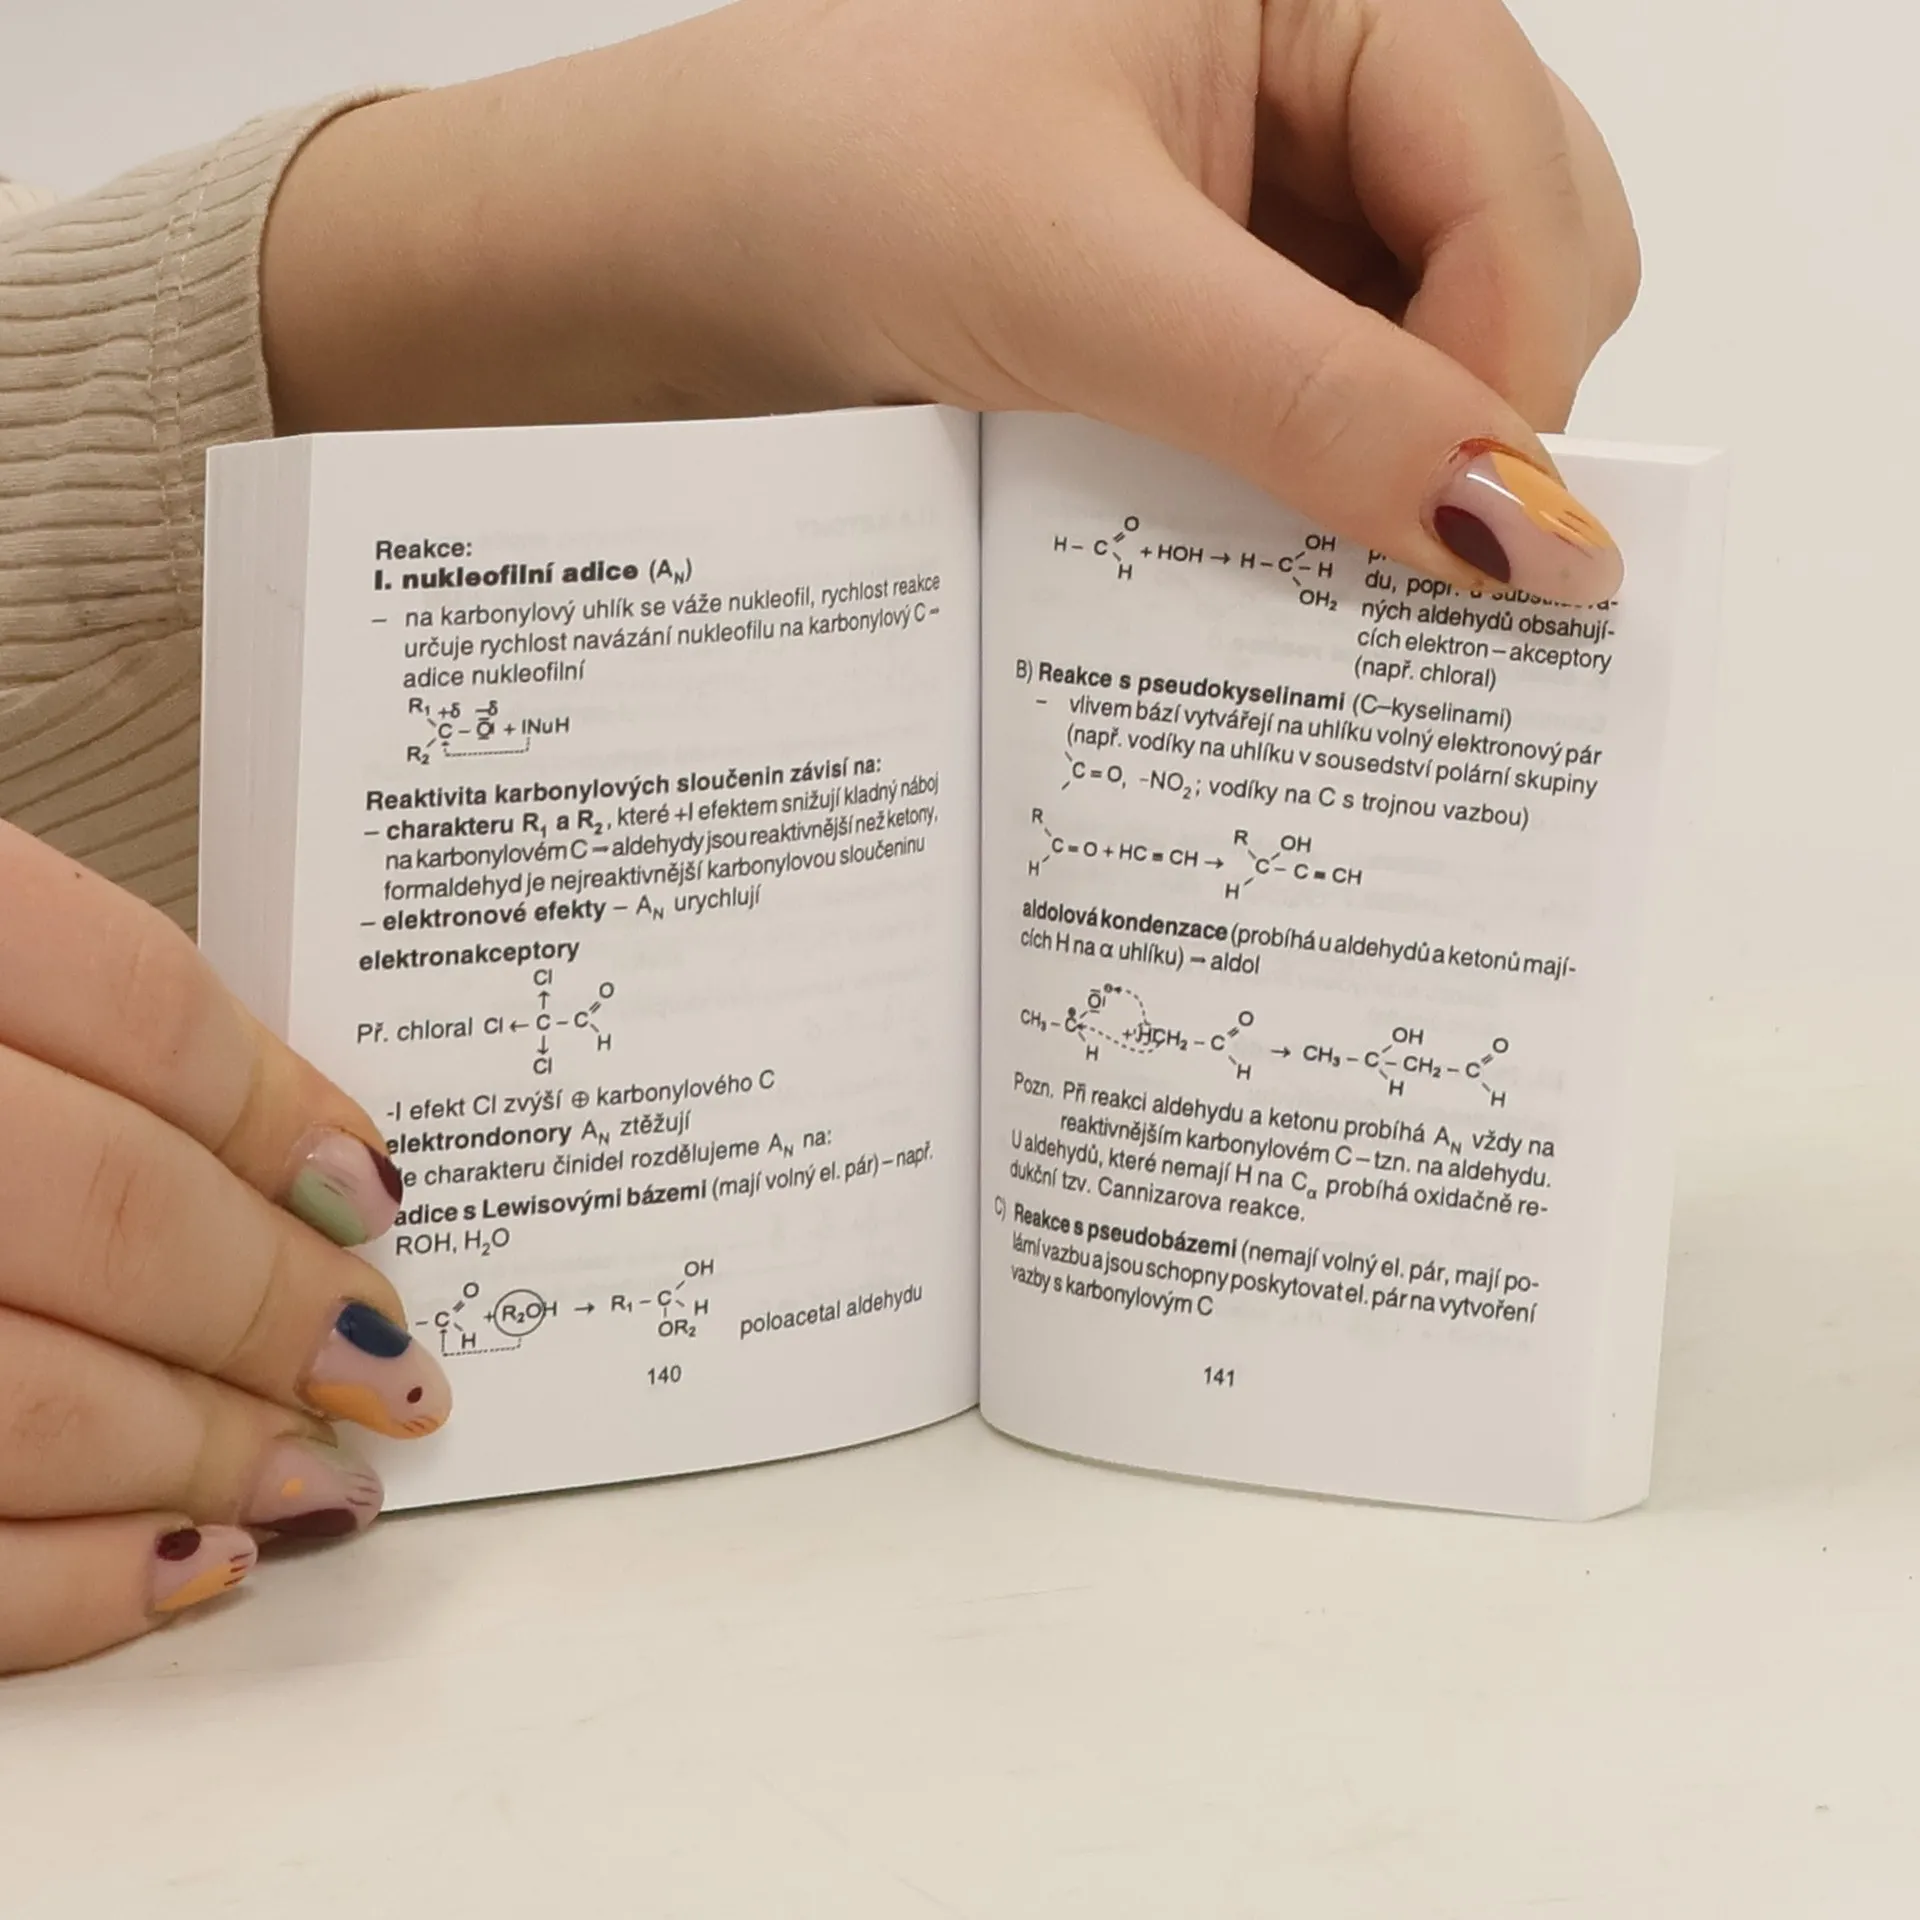 Reakce:
I. nukleofilní adice (A_N)
– na karbonylový uhlík se váže nukleofil, rychlost reakce
určuje rychlost navázání nukleofilu na karbonylový C –
adice nukleofilní
R₁ +δ –δ
C – O + INuH
R₂
Reaktivita karbonylových sloučenin závisí na:
– charakteru R₁ a R₂, které +I efektem snižují kladný náboj
na karbonylovém C – aldehydy jsou reaktivnější než ketony,
formaldehyd je nejreaktivnější karbonylovou sloučeninu
– elektronové efekty – A_N urychlují
elektronakceptory
Cl
↑ O
Př. chloral Cl ← C – C
↓ H
Cl
-I efekt Cl zvýší ⊕ karbonylového C
elektrondonory A_N ztěžují
e charakteru činidel rozdělujeme A_N na:
adice s Lewisovými bázemi (mají volný el. pár) – např.
ROH, H₂O
O OH
– C + R₂OH → R₁ – C H
H OR₂ poloacetal aldehydu
140
O OH
H – C + HOH → H – C – H
H OH₂
du, popř.
ných aldehydů obsahují-
cích elektron – akceptory
(např. chloral)
B) Reakce s pseudokyselinami (C–kyselinami)
– vlivem bází vytvářejí na uhlíku volný elektronový pár
(např. vodíky na uhlíku v sousedství polární skupiny
C=O, -NO₂; vodíky na C s trojnou vazbou)
R R OH
C=O + HC≡CH → C – C≡CH
H H
aldolová kondenzace (probíhá u aldehydů a ketonů mají-
cích H na α uhlíku) – aldol
O O OH O
CH₃ – C + HCH₂ – C → CH₃ – C – CH₂ – C
H H H H
Pozn. Při reakci aldehydu a ketonu probíhá A_N vždy na
reaktivnějším karbonylovém C – tzn. na aldehydu.
U aldehydů, které nemají H na C_α probíhá oxidačně re-
dukční tzv. Cannizarova reakce.
C) Reakce s pseudobázemi (nemají volný el. pár, mají po-
lární vazbu a jsou schopny poskytovat el. pár na vytvoření
vazby s karbonylovým C
141